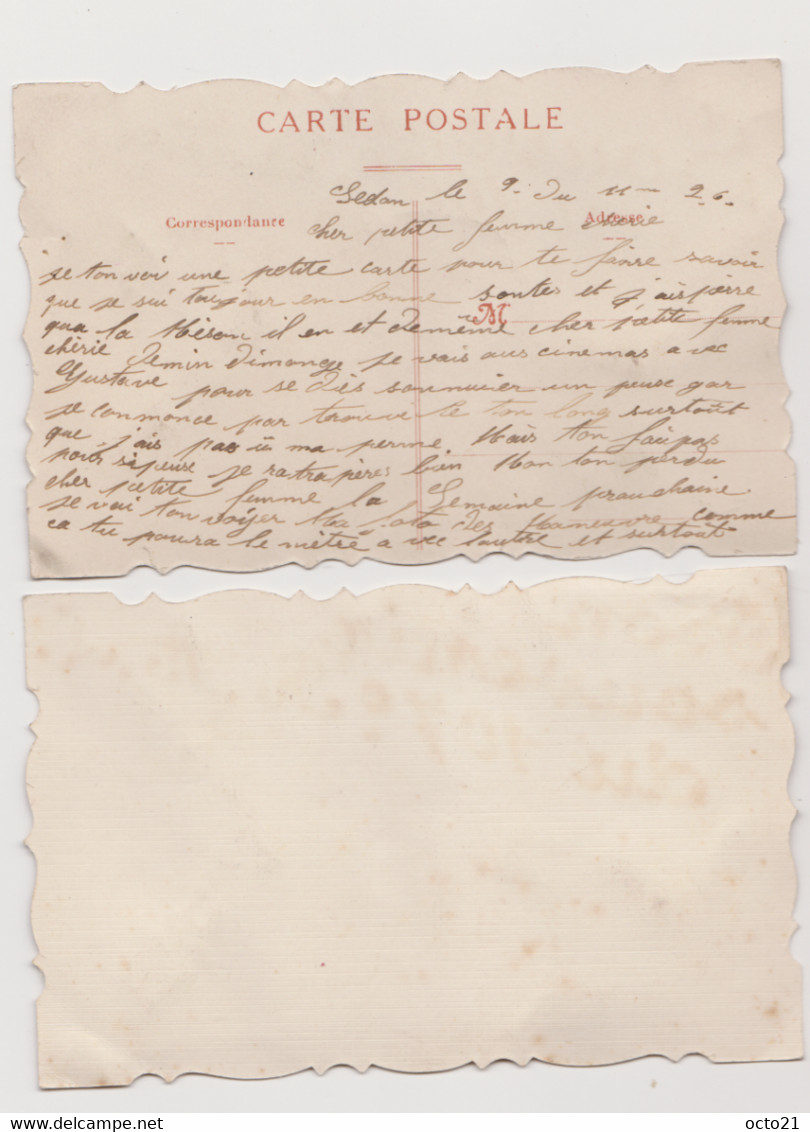 CARTE POSTALE
Sedan le 9. du 11 26.
Correspondance Adresse
cher petite femme cherie
je ton voi une petite carte pour te faire savoir
que je sui toujour en bonne santes et j'aispère
M
qua la Méson il en et de même cher petite femme
chèrie Demin dimange je vais aus cinemas a vec
Gustave pour se dés sannuier un peux car
je commance par trouve le ton long surtoût
que j'ais pas ü ma perme Mais ton fai pas
pour sa peuse je ratraperès bien Mon ton perdu
cher petite femme la Semaine prauchaine
je vai ton voijer Ma foto des Maneuvre comme
ca tu poura le mètre a vec l'autre et surtoût
octo21